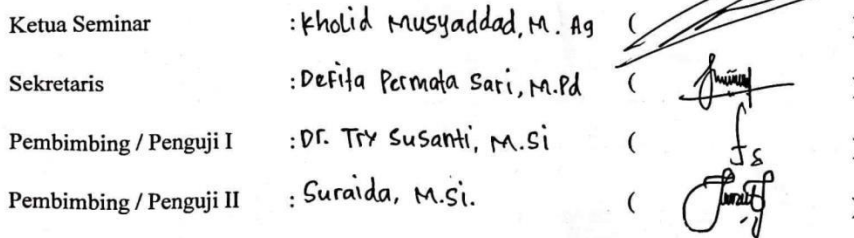 Ketua Seminar : Kholid Musyaddad, M. Ag (
Sekretaris : Defita Permata Sari, M.Pd (
Pembimbing / Penguji I : Dr. Try Susanti, M.Si (
Pembimbing / Penguji II : Suraida, M.Si. (